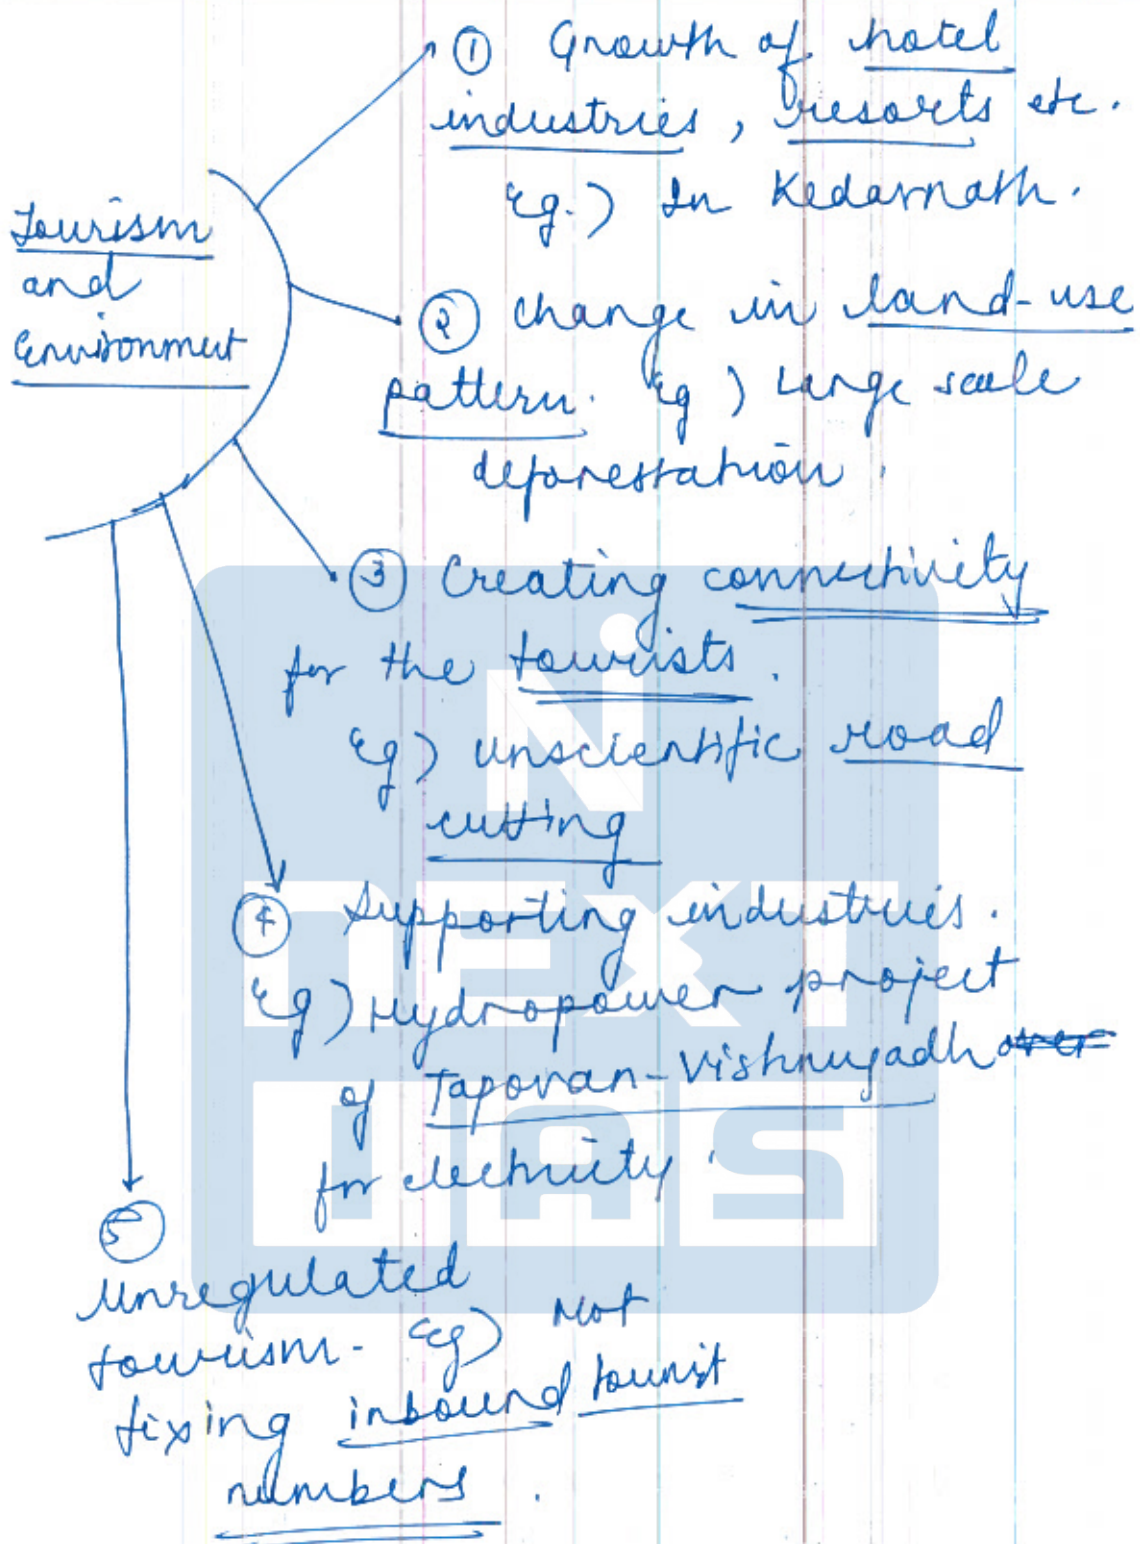 Tourism
and
Environment
① Growth of hotel
industries, resorts etc.
Eg.) In Kedarnath.
② Change in land-use
pattern. Eg) Large scale
deforestation.
③ Creating connectivity
for the tourists.
Eg) Unscientific road
cutting
④ Supporting industries.
Eg) Hydropower project
of Tapovan-Vishnugadh over
for electricity.
⑤
Unregulated
tourism. Eg) Not
fixing inbound tourist
numbers.
NEXT
IAS